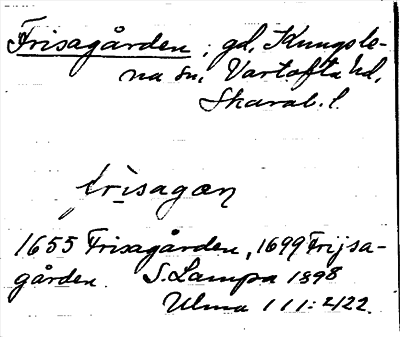 Frisagården, gd, Kungsle-
na sn, Vartofta hd,
Skarab. l.
frisagæn
1655 Frisagården, 1699 Frijsa-
gården. S. Lampa 1898
Ulma 111:2122.